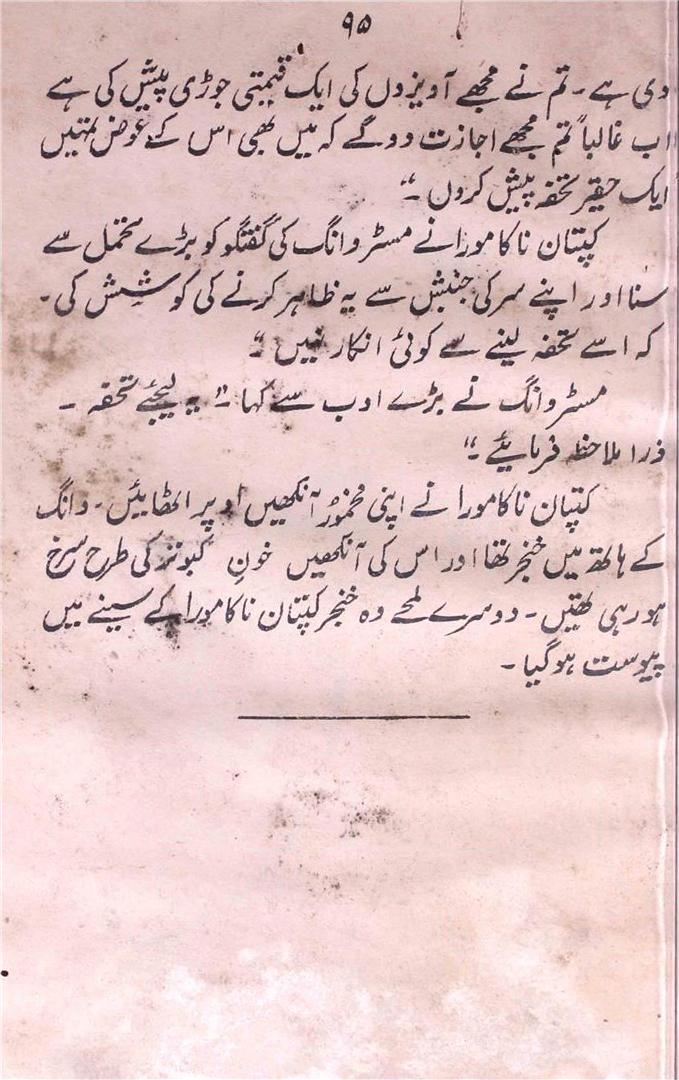 ۹۵
دی ہے۔ تم نے مجھے آویزوں کی ایک قیمتی جوڑی پیش کی ہے
اب غالباً تم مجھے اجازت دوگے کہ میں بھی اس کے عوض تمہیں
ایک حقیر تحفہ پیش کروں۔“
کپتان ناکامورا نے مسٹر وانگ کی گفتگو کو بڑے تحمل سے
سنا اور اپنے سر کی جنبش سے یہ ظاہر کرنے کی کوشش کی۔
کہ اسے تحفہ لینے سے کوئی انکار نہیں“۔
مسٹر وانگ نے بڑے ادب سے کہا۔” یہ لیجئے تحفہ ۔
ذرا ملاحظہ فرمایئے۔“
کپتان ناکامورا نے اپنی مخمور آنکھیں اوپر اٹھایئں۔ وانگ
کے ہاتھ میں خنجر تھا اور اس کی آنکھیں خونِ کبوتر کی طرح سرخ
ہو رہی تھیں۔ دوسرے لمحے وہ خنجر کپتان ناکامورا کے سینے میں
پیوست ہوگیا۔